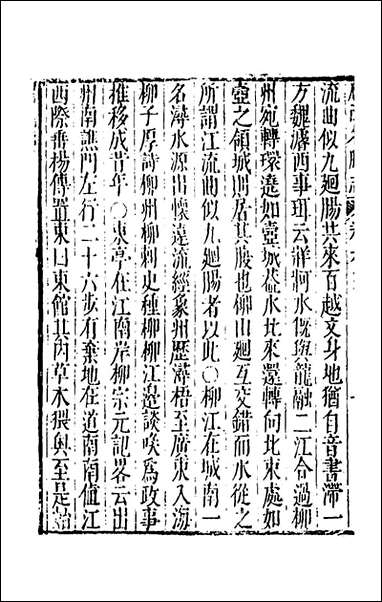 流曲似九廻腸共來百越文身地猶自音書滯一
方魏濬西事珥云牂柯水旣與龍融二江合過柳
州宛轉環遶如壺城葢水北來還轉向北東處如
壺之領城則居其腹也柳山廻互交錯而水從之
所謂江流曲似九廻腸者以此○柳江在城南一
名潯水源出懷遠流經象州歷潯梧至廣東入海
柳子厚詩柳州柳刺史種柳柳江邊談咲爲政事
推移成昔年○東亭在江南岸柳宗元記畧云出
州南譙門左行二十六步有棄地在道南南値江
西際垂楊傳置東曰東館其内草木猥奥至是始